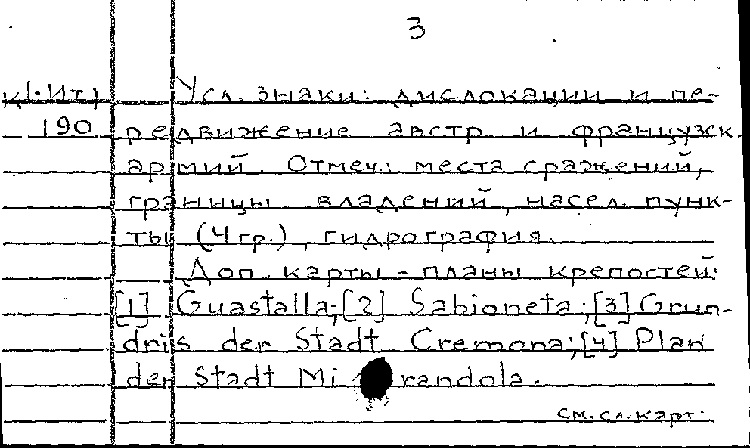 3
К1.Ит) Усл. знаки: дислокации и пе-
190 редвижение австр. и французск.
армий. Отмеч.: места сражений,
границы владений, насел. пунк-
ты (4 гр.), гидрография.
Доп. карты - планы крепостей:
[1] Guastalla; [2] Sabioneta; [3] Grun-
dris der Stadt Cremona; [4] Plan
der Stadt Mirandola.
см. сл. карт.